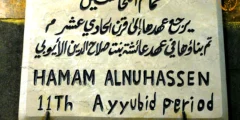 يرجع عهدها إلى قرن الحادي عشر م
تم بناؤها في عهد عائشة بنت صلاح الدين الأيوبي
HAMAM ALNUHASSEN
11Th Ayyubid period